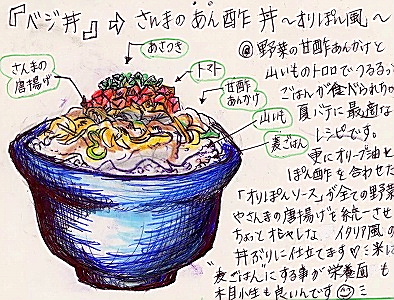 『ベジ丼』⇨ さんまのあん酢丼〜オリぽん風〜
あさつき
さんまの
唐揚げ
トマト
甘酢
あんかけ
山いも
麦ごはん
@ 野菜の甘酢あんかけと
山いものトロロでつるるっ
ごはんが食べられちゃ
夏バテに最適な
レシピです。
更にオリーブ油と
ぽん酢を合わせた
「オリぽんソース」が全ての野菜
やさんまの唐揚げを統一させ
ちょっとオシャレな、イタリア風の
丼ぶりに仕立てます♡ミ米に
"麦ごはん"にする事が栄養面も
相性も良いんです